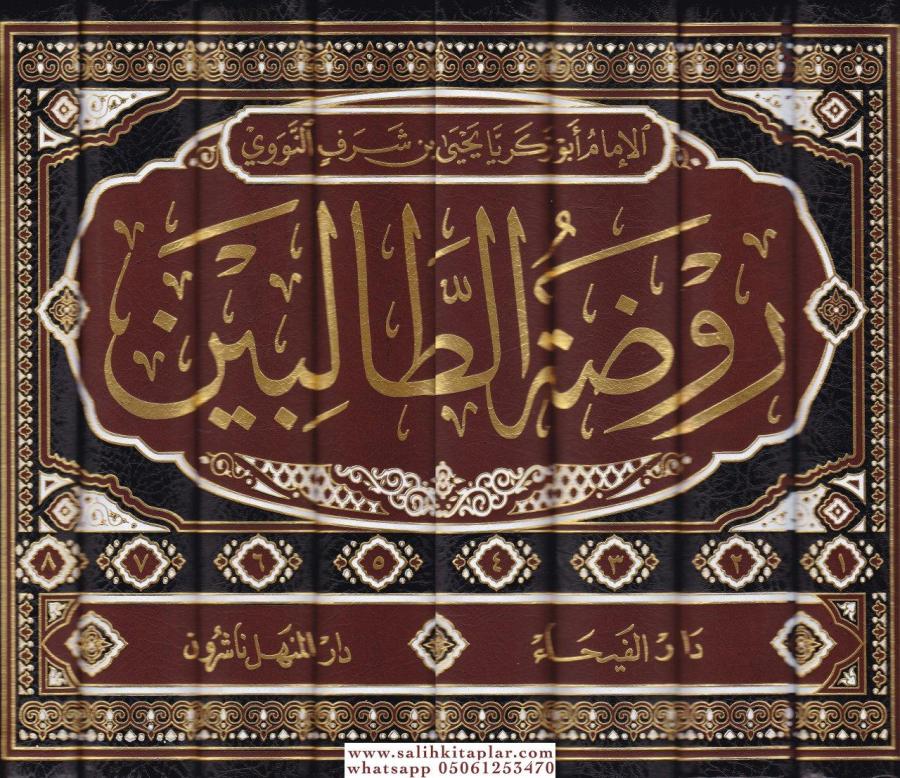 الإمام أبو زكريا يحيى بن شرف النووي
روضة الطالبين
١ ٢ ٣ ٤ ٥ ٦ ٧ ٨
دار الفيحاء دار المنهل ناشرون
www.salihkitaplar.com
whatsapp 05061253470